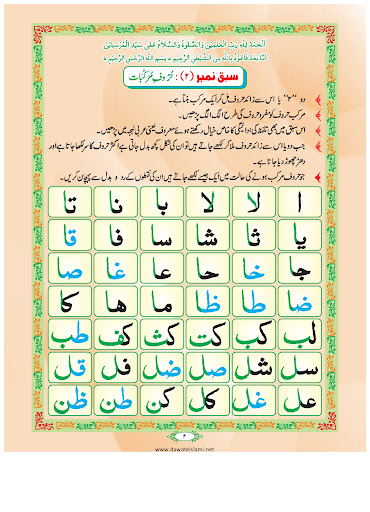 اَلْحَمْدُ لِلّٰهِ رَبِّ الْعٰلَمِيْنَ وَالصَّلٰوةُ وَالسَّلَامُ عَلٰى سَيِّدِ الْمُرْسَلِيْنَ
اَمَّا بَعْدُ فَاَعُوْذُ بِاللّٰهِ مِنَ الشَّيْطٰنِ الرَّجِيْمِ ط بِسْمِ اللّٰهِ الرَّحْمٰنِ الرَّحِيْمِ ط
سبق نمبر (۲) : حروفِ مرکّبات
دو "۲" یا اس سے زائد حروف مل کر ایک مرکب بنتا ہے۔
مرکب حروف کو مفرد حروف کی طرح الگ الگ پڑھیں۔
اس سبق میں بھی تلفظ کی ادائیگی کا خاص خیال رکھتے ہوئے معروف یعنی عربی لہجہ میں پڑھیں۔
جب دو یا اس سے زائد حروف ملا کر لکھے جاتے ہیں تو ان کی شکل کچھ بدل جاتی ہے اکثر حروف کا سر لکھا جاتا ہے اور
دھڑ چھوڑ دیا جاتا ہے۔
جو حروف مرکب ہونے کی حالت میں ایک جیسے لکھے جاتے ہیں ان کی نقطوں کے رد و بدل سے پہچان کریں۔
ا لا لا با نا تا
یا ثا شا سا فا قا
جا خا حا عا غا صا
ضا طا ظا ما ها کا
لب کب کت کث کف طب
سل شل صل ضل فل قل
عل غل کل کن طن ظن
۳
www.dawateislami.net